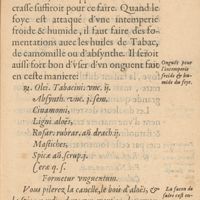 crasse suffiroit pour ce faire. Quand le
foye est attaqué d'vne intemperie
froide & humide, il faut faire des fo-
mentations auec les huiles de Tabac,
de camomille ou d'absynthe. Il seroit
aussi fort bon d'vser d'vn onguent fait
en ceste maniere:
Onguēt pour
l'intemperie
froide & hu-
mide du foye.
♃. Olei. Tabacini: vnc. ij.
Absynth. vnc. j. sem.
Cinamomi,
Ligni aloës,
Rosar. rubrar. añ. drach. ij.
Mastiches,
Spicæ añ. scrup. j.
Ceræ q. s.
Formetur vnguentum.
Vous pilerez la canelle, le bois d'aloës, &
La façon de